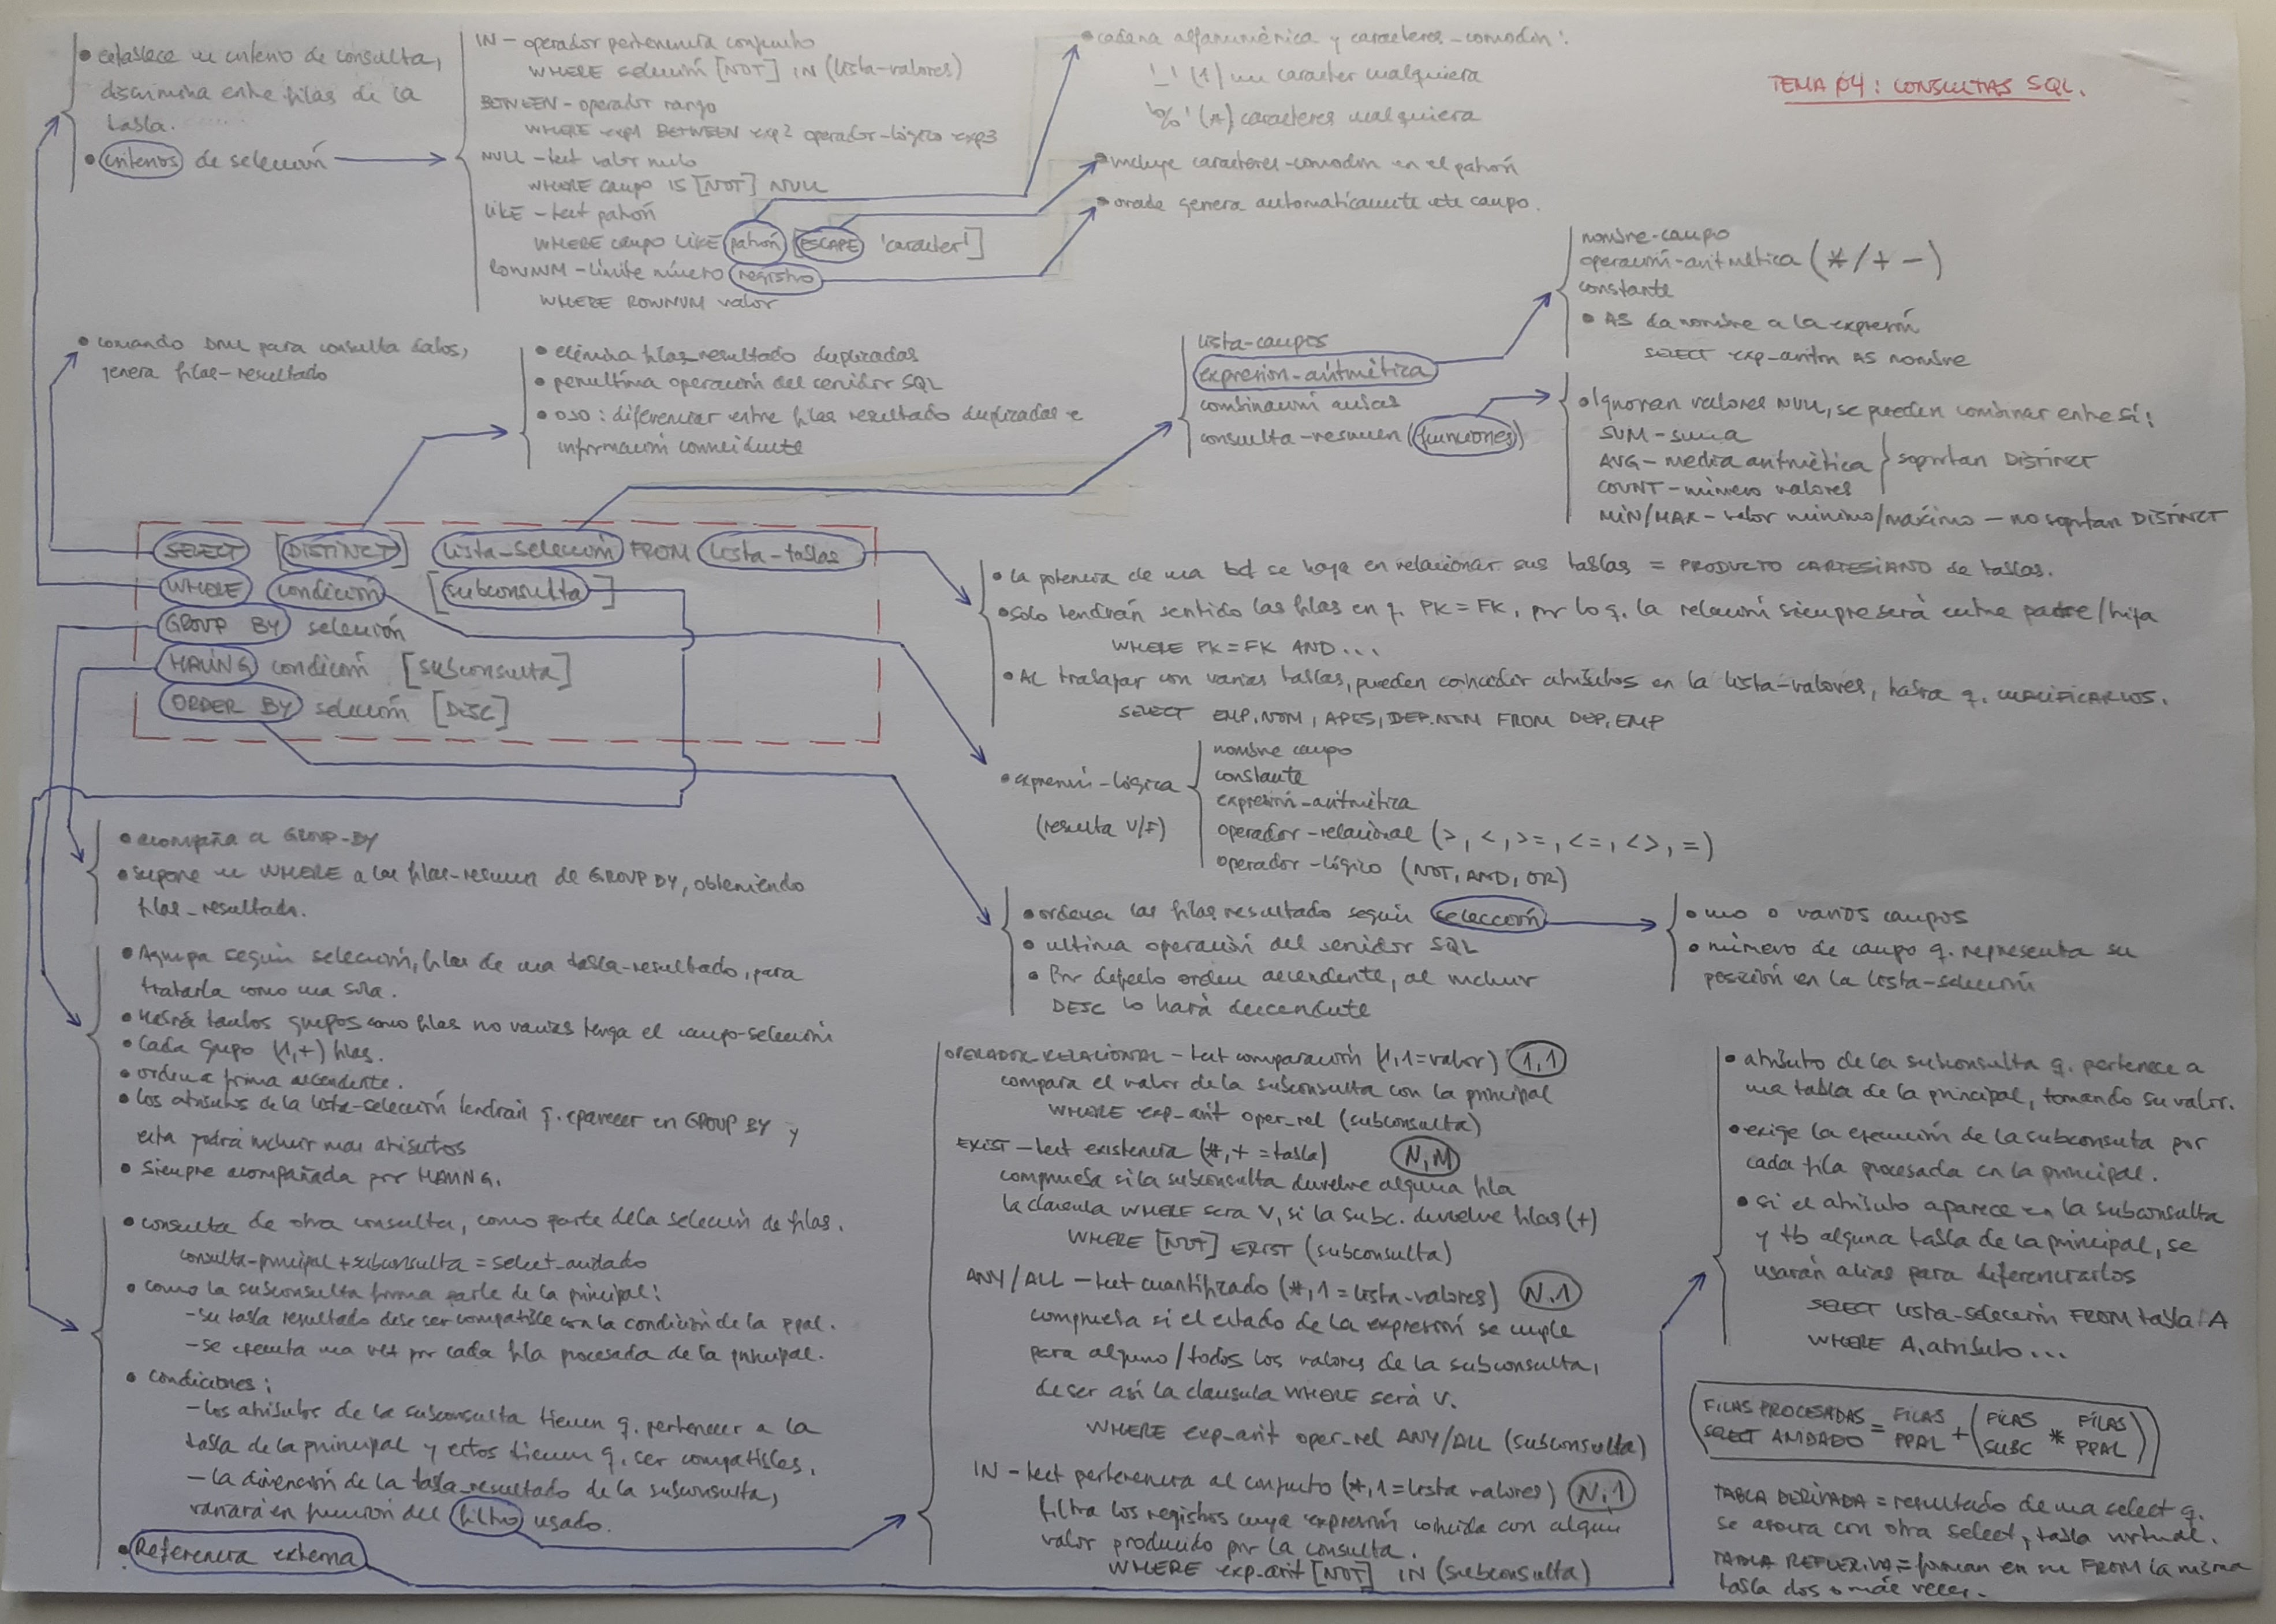 TEMA 04: CONSULTAS SQL.
• establece un criterio de consulta,
discrimina entre filas de la
tabla.
• criterios de selección
IN - operador pertenencia conjunto
WHERE selección [NOT] IN (lista-valores)
BETWEEN - operador rango
WHERE exp1 BETWEEN exp2 operador-lógico exp3
NULL - test valor nulo
WHERE campo IS [NOT] NULL
LIKE - test patrón
WHERE campo LIKE patrón [ESCAPE 'caracter']
ROWNUM - límite número registro
WHERE ROWNUM valor
• cadena alfanumérica y caracteres-comodín:
'_' (1) un caracter cualquiera
'%' (*) caracteres cualquiera
• incluye caracteres-comodín en el patrón
• oracle genera automáticamente este campo.
• comando DML para consulta datos,
genera filas-resultado
• elimina filas_resultado duplicadas
• penúltima operación del servidor SQL
• OJO: diferenciar entre filas resultado duplicadas e
información coincidente
lista-campos
expresion-aritmética
combinación ambas
consulta-resumen (funciones)
nombre-campo
operación-aritmética (* / + -)
constante
• AS da nombre a la expresión
SELECT exp-aritm AS nombre
• Ignoran valores NULL, se pueden combinar entre sí:
SUM - suma
AVG - media aritmética
COUNT - número valores
soportan DISTINCT
MIN/MAX - valor mínimo/máximo - no soportan DISTINCT
SELECT [DISTINCT] lista_selección FROM lista-tablas
WHERE condición [subconsulta]
GROUP BY selección
HAVING condición [subconsulta]
ORDER BY selección [DESC]
• La potencia de una bd se haya en relacionar sus tablas = PRODUCTO CARTESIANO de tablas.
• solo tendrán sentido las filas en q. PK = FK, por lo q. la relación siempre será entre padre/hija
WHERE PK = FK AND ...
• Al trabajar con varias tablas, pueden coincidir atributos en la lista-valores, habrá q. CUALIFICARLOS.
SELECT EMP.NOM, APES, DEP.NOM FROM DEP, EMP
• expresión-lógica
(resulta V/F)
nombre campo
constante
expresión-aritmética
operador-relacional (>, <, >=, <=, <>, =)
operador-lógico (NOT, AND, OR)
• ordena las filas resultado según selección
• ultima operación del servidor SQL
• Por defecto orden ascendente, al incluir
DESC lo hará descendente
• uno o varios campos
• número de campo q. representa su
posición en la lista-selección
• acompaña a GROUP-BY
• supone un WHERE a las filas-resumen de GROUP BY, obteniendo
filas_resultado.
• Agrupa según selección, filas de una tabla-resultado, para
tratarla como una sola.
• Habrá tantos grupos como filas no vacías tenga el campo-selección
• Cada grupo (1,+) filas.
• ordena forma ascendente.
• Los atributos de la lista-selección tendrán q. aparecer en GROUP BY y
esta podrá incluir mas atributos
• Siempre acompañada por HAVING.
• consulta de otra consulta, como parte de la selección de filas.
consulta-principal + subconsulta = select_anidado
• como la subconsulta forma parte de la principal:
- su tabla resultado debe ser compatible con la condición de la ppal.
- se ejecuta una vez por cada fila procesada de la principal.
• Condiciones:
- los atributos de la subconsulta tienen q. pertenecer a la
tabla de la principal y estos tienen q. ser compatibles.
- la dimensión de la tabla_resultado de la subconsulta,
variará en función del filtro usado.
• Referencia externa
OPERADOR RELACIONAL - test comparación (1,1 = valor) 1,1
compara el valor de la subconsulta con la principal
WHERE exp_arit oper_rel (subconsulta)
EXIST - test existencia (*,+ = tabla) N,M
comprueba si la subconsulta devuelve alguna fila
la clausula WHERE será V, si la subc. devuelve filas (+)
WHERE [NOT] EXIST (subconsulta)
ANY/ALL - test cuantificado (*,1 = lista-valores) N,1
comprueba si el estado de la expresión se cumple
para alguno/todos los valores de la subconsulta,
de ser así la clausula WHERE será V.
WHERE exp_arit oper_rel ANY/ALL (subconsulta)
IN - test pertenencia al conjunto (*,1 = lista valores) N,1
filtra los registros cuya expresión coincida con algún
valor producido por la consulta.
WHERE exp_arit [NOT] IN (subconsulta)
• atributo de la subconsulta q. pertenece a
una tabla de la principal, tomando su valor.
• exige la ejecución de la subconsuta por
cada fila procesada en la principal.
• si el atributo aparece en la subconsulta
y tb alguna tabla de la principal, se
usarán alias para diferenciarlos
SELECT lista-selección FROM tabla A
WHERE A.atributo ...
FILAS PROCESADAS SELECT ANIDADO = FILAS PPAL + (FILAS SUBC * FILAS PPAL)
TABLA DERIVADA = resultado de una select q.
se asocia con otra select, tabla virtual.
TABLA REFLEXIVA = forman en su FROM la misma
tabla dos o más veces.